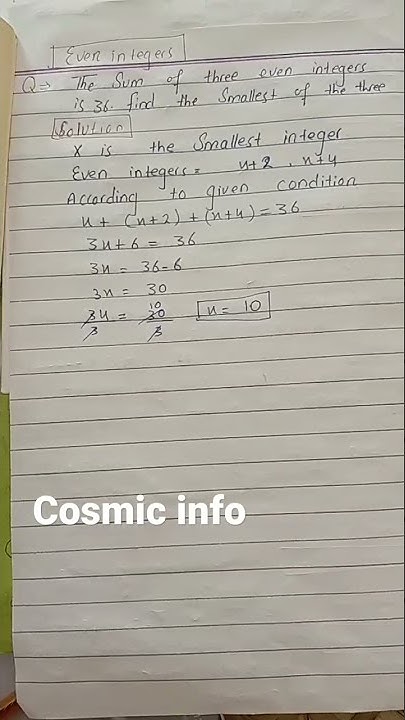 Even integers
Q→ The Sum of three even integers
is 36. find the Smallest of the three
Solution
X is the Smallest integer
Even integers = x+2, x+4
According to given condition
x + (x+2) + (x+4) = 36
3x+6 = 36
3x = 36-6
3x = 30
10
3x = 30 x = 10
3 3
Cosmic info